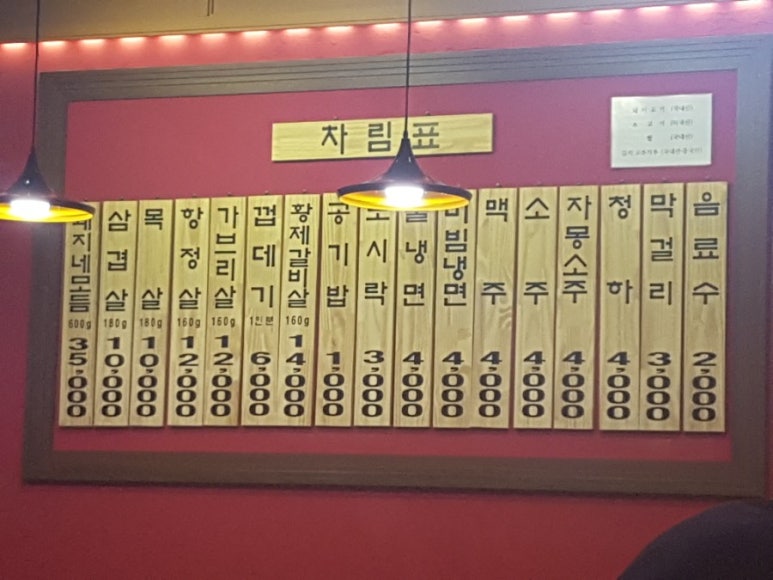 차림표
돼지고기 (국내산)
소고기 (미국산)
쌀 (국내산)
돼지네모듬 600g 35,000
삼겹살 180g 10,000
목살 180g 10,000
항정살 160g 12,000
가브리살 160g 12,000
껍데기 1인분 6,000
황제갈비살 160g 14,000
공기밥 1,000
도시락 3,000
물냉면 4,000
비빔냉면 4,000
맥주 4,000
소주 4,000
자몽소주 4,000
청하 4,000
막걸리 3,000
음료수 2,000